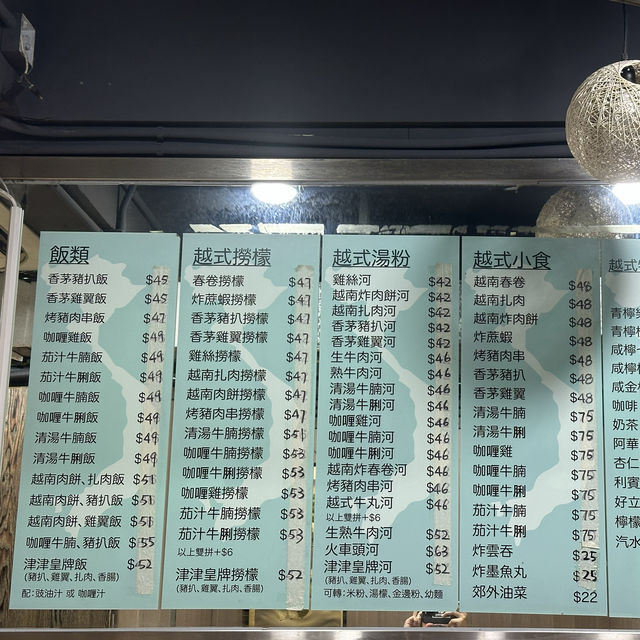 飯類
香茅豬扒飯 $45
香茅雞翼飯 $45
烤豬肉串飯 $47
咖喱雞飯 $49
茄汁牛腩飯 $49
茄汁牛脷飯 $49
咖喱牛腩飯 $49
咖喱牛脷飯 $49
清湯牛腩飯 $49
清湯牛脷飯 $49
越南肉餅、扎肉飯 $51
越南肉餅、豬扒飯 $51
越南肉餅、雞翼飯 $51
咖喱牛腩、豬扒飯 $55
津津皇牌飯 $52
(豬扒、雞翼、扎肉、香腸)
配：豉油汁 或 咖喱汁
越式撈檬
春卷撈檬 $47
炸蔗蝦撈檬 $47
香茅豬扒撈檬 $47
香茅雞翼撈檬 $47
雞絲撈檬 $47
越南扎肉撈檬 $47
越南肉餅撈檬 $47
烤豬肉串撈檬 $47
清湯牛腩撈檬 $51
咖喱牛腩撈檬 $53
咖喱牛脷撈檬 $53
咖喱雞撈檬 $53
茄汁牛腩撈檬 $53
茄汁牛脷撈檬 $53
以上雙拼+$6
津津皇牌撈檬 $52
(豬扒、雞翼、扎肉、香腸)
越式湯粉
雞絲河 $42
越南炸肉餅河 $42
越南扎肉河 $42
香茅豬扒河 $42
香茅雞翼河 $42
生牛肉河 $46
熟牛肉河 $46
清湯牛腩河 $46
清湯牛脷河 $46
咖喱雞河 $46
咖喱牛腩河 $46
咖喱牛脷河 $46
越南炸春卷河 $46
烤豬肉串河 $46
越式牛丸河 $46
以上雙拼+$6
生熟牛肉河 $52
火車頭河 $63
津津皇牌河 $52
(豬扒、雞翼、扎肉、香腸)
可轉：米粉、湯檬、金邊粉、幼麵
越式小食
越南春卷 $48
越南扎肉 $48
越南炸肉餅 $48
炸蔗蝦 $48
烤豬肉串 $48
香茅豬扒 $48
香茅雞翼 $48
清湯牛腩 $75
清湯牛脷 $75
咖喱雞 $75
咖喱牛腩 $75
咖喱牛脷 $75
茄汁牛腩 $75
茄汁牛脷 $75
炸雲吞 $25
炸墨魚丸 $25
郊外油菜 $22
越式
青檸
青檸
咸檸
咸檸
咸金
咖啡
奶茶
阿華
杏仁
利賓
好立
檸檬
汽水